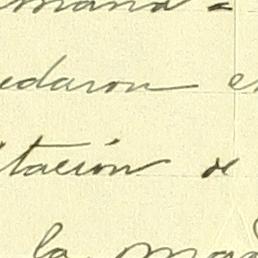 mana =
edaron e
itación de
la ma